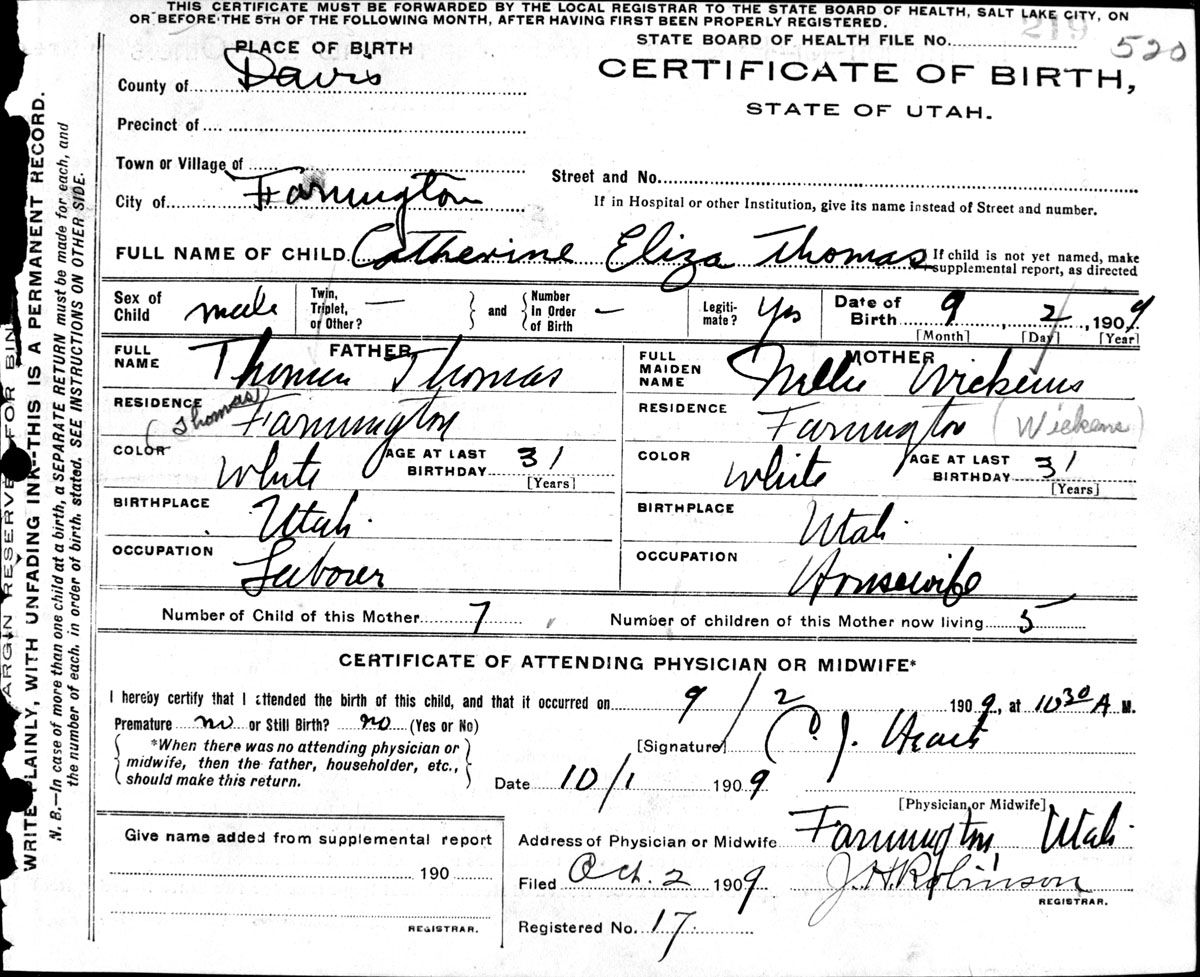 THIS CERTIFICATE MUST BE FORWARDED BY THE LOCAL REGISTRAR TO THE STATE BOARD OF HEALTH, SALT LAKE CITY, ON
OR BEFORE THE 5TH OF THE FOLLOWING MONTH, AFTER HAVING FIRST BEEN PROPERLY REGISTERED.
STATE BOARD OF HEALTH FILE No. 219 520
PLACE OF BIRTH
CERTIFICATE OF BIRTH,
STATE OF UTAH.
County of Davis
Precinct of
Town or Village of
Street and No.
City of Farmington
If in Hospital or other Institution, give its name instead of Street and number.
FULL NAME OF CHILD Catherine Eliza Thomas
If child is not yet named, make
supplemental report, as directed
Sex of Child male
Twin, Triplet, or Other? —
and
Number In Order of Birth —
Legitimate? Yes
Date of Birth 9, 2, 1909
[Month] [Day] [Year]
FATHER
FULL NAME Thomas Thomas
RESIDENCE Farmington
(Thomas)
COLOR White
AGE AT LAST BIRTHDAY 31
[Years]
BIRTHPLACE Utah
OCCUPATION Laborer
MOTHER
FULL MAIDEN NAME Nellie Wickens
RESIDENCE Farmington (Wickens)
COLOR White
AGE AT LAST BIRTHDAY 31
[Years]
BIRTHPLACE Utah
OCCUPATION Housewife
Number of Child of this Mother 7
Number of children of this Mother now living 5
CERTIFICATE OF ATTENDING PHYSICIAN OR MIDWIFE*
I hereby certify that I attended the birth of this child, and that it occurred on 9/2 1909, at 10 30 A M.
Premature no or Still Birth? no (Yes or No)
*When there was no attending physician or
midwife, then the father, householder, etc.,
should make this return.
[Signature] J.
Date 10/1 1909
[Physician or Midwife]
Give name added from supplemental report
190
REGISTRAR.
Address of Physician or Midwife Farmington Utah
Filed Oct. 2 1909 J. H. Robinson
REGISTRAR.
Registered No. 17
MARGIN RESERVED FOR BIN
WRITE PLAINLY, WITH UNFADING INK--THIS IS A PERMANENT RECORD.
N. B.—In case of more than one child at a birth, a SEPARATE RETURN must be made for each, and
the number of each, in order of birth, stated. SEE INSTRUCTIONS ON OTHER SIDE.